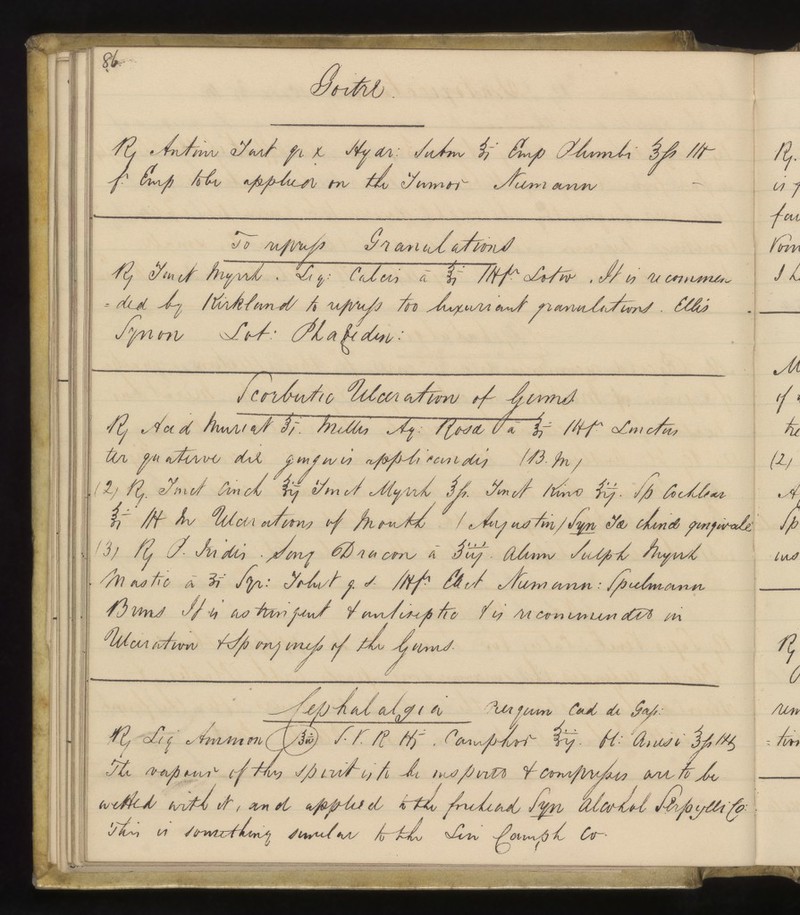 86
Goitre.
℞ Antim Tart gr x Hydr: Subm ʒi Emp Plumbi ℥ß M
f. Emp to be applied on the Tumor Niemann
To repress Granulations
℞ Tinct Myrrh. Liq: Calcis ā ℥i Mft Lotio. It is recommen
=ded by Kirkland to repress too luxuriant granulations. Ellis
Synon Lot:
Scorbutic Ulceration of Gums
℞ Acid Muriat ʒi. Mellis Aq: Rosæ ā ℥i Mft Linctus
ter quaterve die gingivis applicandis (B. M)
(2) ℞. Tinct Cinch Tinct Myrrh ℥ß. Tinct Kino Sp Cochlear
℥i M In Ulcerations of Mouth (Augustin) Syn Ta chinæ gingivale
(3) ℞ P. Iridis. Sang Dracon ā ʒiij. Alum Sulph Myrrh
Mastic ā ʒi Syr: Tolut q.s Mft Elect Niemann: Spielmann
It is astringent & antiseptic & is recommended in
Ulceration & Sponginess of the Gums.
Cephalalgia Cad de Gas:
℞ Liq Ammon S.V.R Camphor Ol: Anisi
The vapour of this spirit is to be inspired & compresses are to be
wetted with it, and applied to the forehead Syn Alcohol Serpylli Co:
This is something similar to the Lin Camph Co.